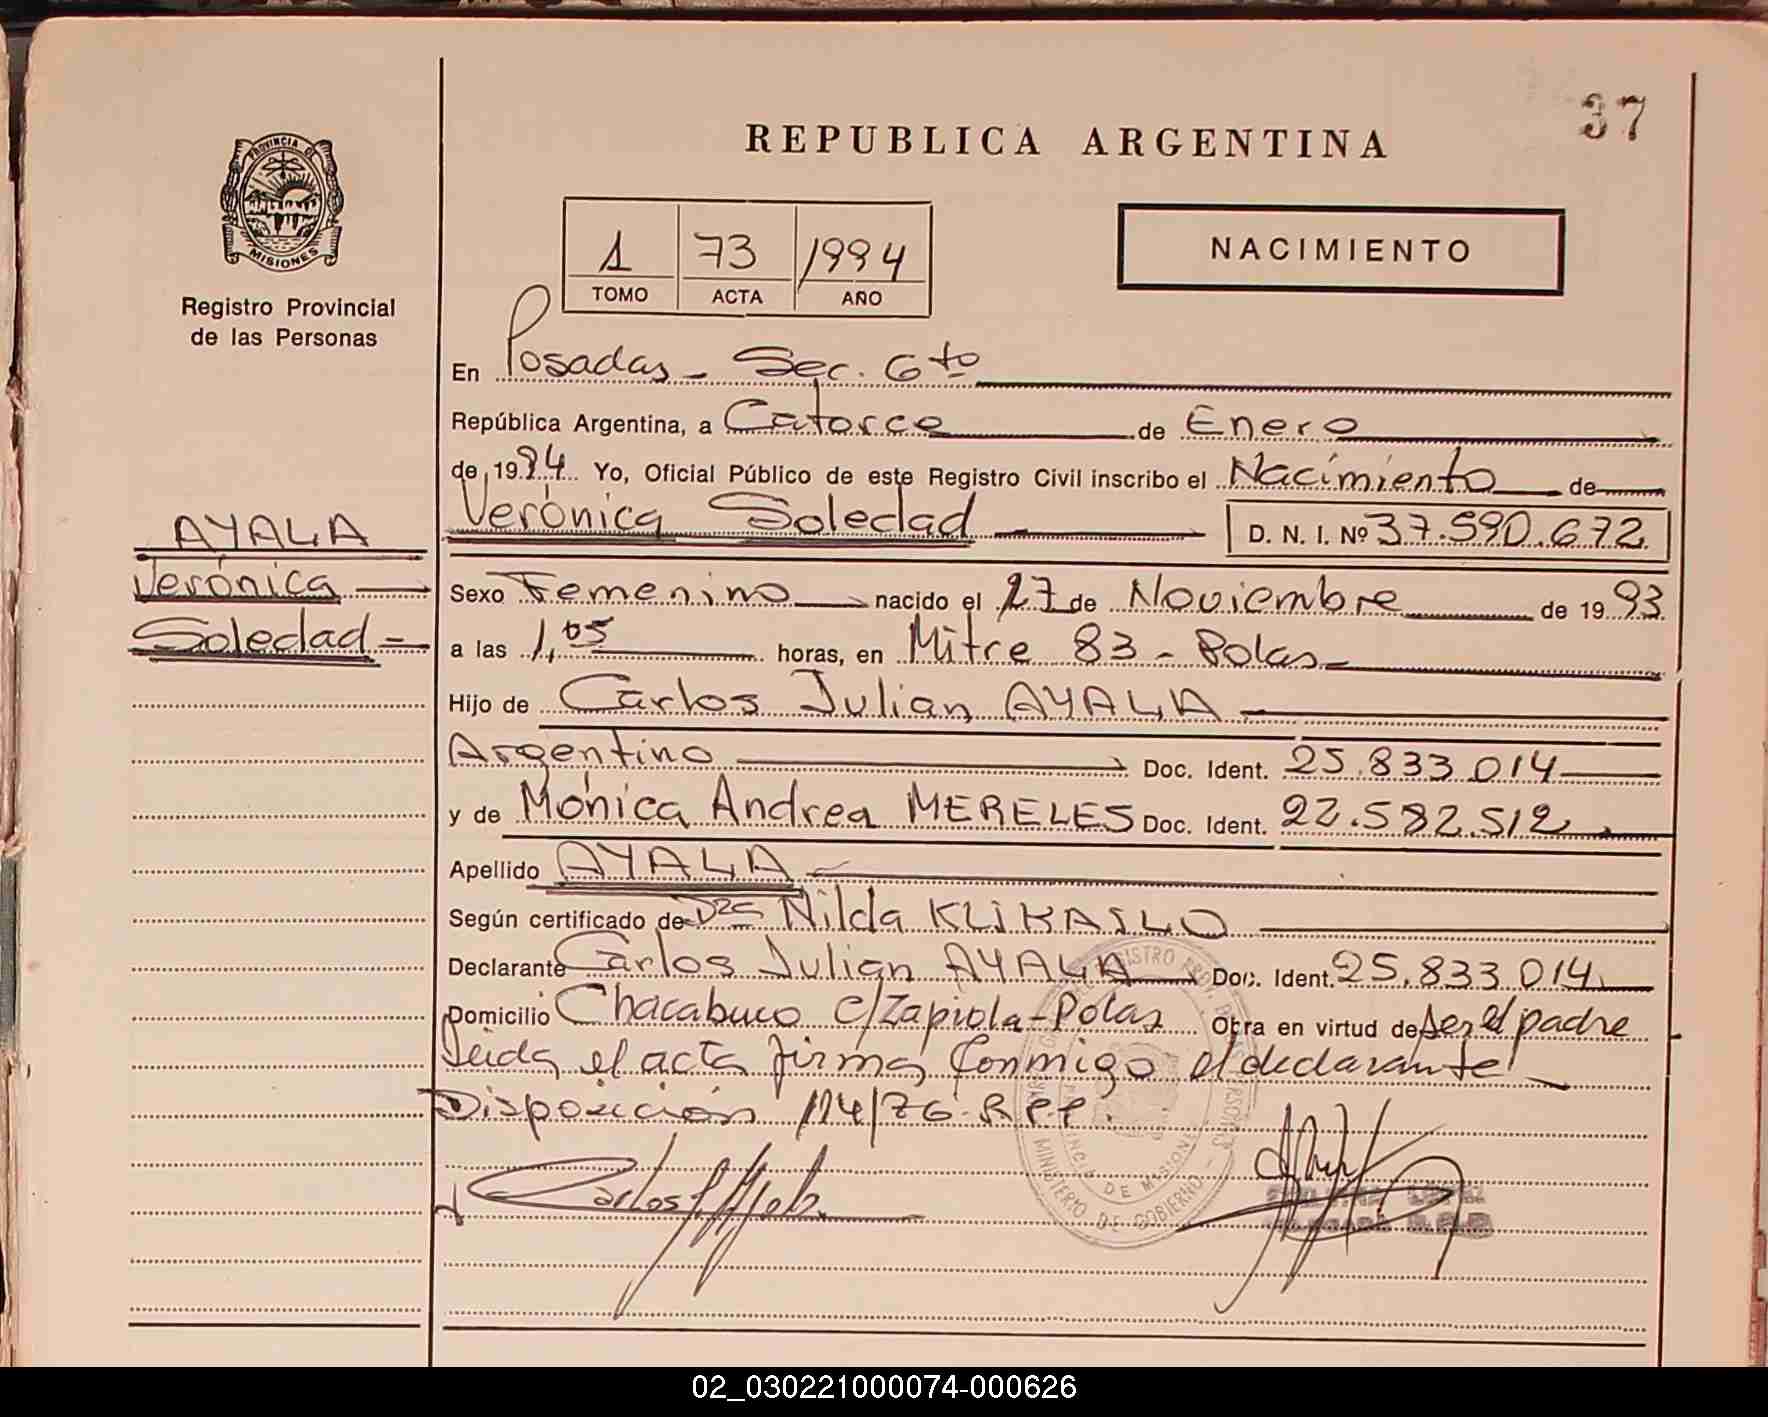 37
REPUBLICA ARGENTINA
PROVINCIA DE
MISIONES
Registro Provincial
de las Personas
1 73 1994
TOMO ACTA AÑO
NACIMIENTO
En Posadas - Sec. 6to
República Argentina, a Catorce de Enero
de 1994 Yo, Oficial Público de este Registro Civil inscribo el Nacimiento de
Verónica Soledad D. N. I. Nº 37.590.672
AYALA
Verónica
Soledad =
Sexo Femenino nacido el 27 de Noviembre de 1993
a las 1,05 horas, en Mitre 83 - Pdas
Hijo de Carlos Julian AYALA
Argentino Doc. Ident. 25.833.014
y de Mónica Andrea MERELES Doc. Ident. 22.582.512
Apellido AYALA
Según certificado de Dra Nilda KLIKAILO
Declarante Carlos Julian AYALA Doc. Ident. 25.833.014
Domicilio Chacabuco c/Zapiola - Pdas Obra en virtud de ser el padre
Leída el acta firma conmigo el declarante
Disposición 114/76 R.P.P.
Carlos J. Ayala
MINISTERIO DE GOBIERNO
PROVINCIA DE MISIONES
02_030221000074-000626